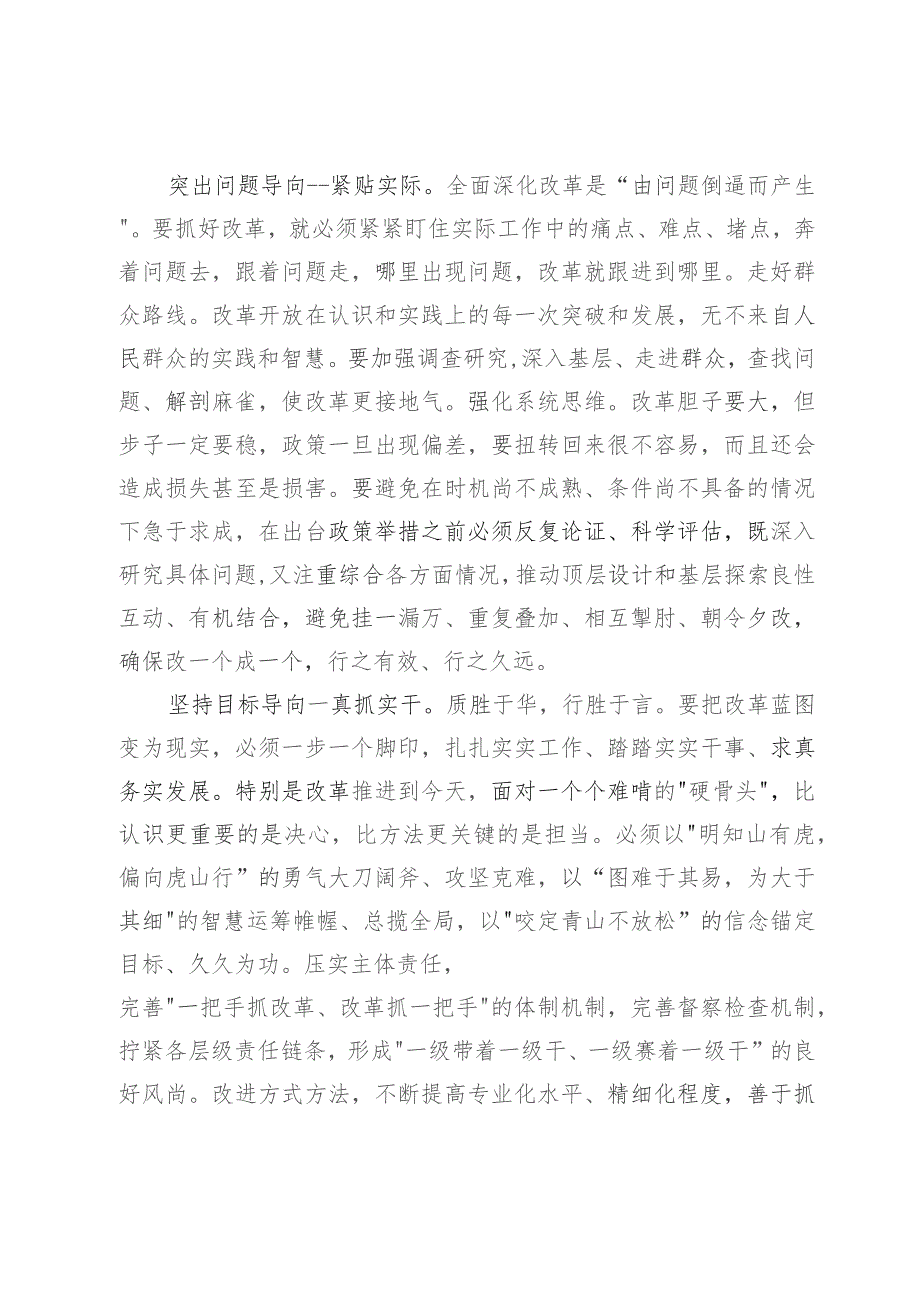 突出问题导向--紧贴实际。全面深化改革是“由问题倒逼而产生
"。要抓好改革，就必须紧紧盯住实际工作中的痛点、难点、堵点，奔
着问题去，跟着问题走，哪里出现问题，改革就跟进到哪里。走好群
众路线。改革开放在认识和实践上的每一次突破和发展，无不来自人
民群众的实践和智慧。要加强调查研究,深入基层、走进群众，查找问
题、解剖麻雀，使改革更接地气。强化系统思维。改革胆子要大，但
步子一定要稳，政策一旦出现偏差，要扭转回来很不容易，而且还会
造成损失甚至是损害。要避免在时机尚不成熟、条件尚不具备的情况
下急于求成，在出台政策举措之前必须反复论证、科学评估，既深入
研究具体问题,又注重综合各方面情况,推动顶层设计和基层探索良性
互动、有机结合，避免挂一漏万、重复叠加、相互掣肘、朝令夕改，
确保改一个成一个，行之有效、行之久远。
坚持目标导向一真抓实干。质胜于华，行胜于言。要把改革蓝图
变为现实，必须一步一个脚印，扎扎实实工作、踏踏实实干事、求真
务实发展。特别是改革推进到今天，面对一个个难啃的"硬骨头"，比
认识更重要的是决心，比方法更关键的是担当。必须以"明知山有虎，
偏向虎山行”的勇气大刀阔斧、攻坚克难，以“图难于其易，为大于
其细"的智慧运筹帷幄、总揽全局，以"咬定青山不放松”的信念锚定
目标、久久为功。压实主体责任，
完善"一把手抓改革、改革抓一把手"的体制机制，完善督察检查机制，
拧紧各层级责任链条，形成"一级带着一级干、一级赛着一级干”的良
好风尚。改进方式方法，不断提高专业化水平、精细化程度，善于抓